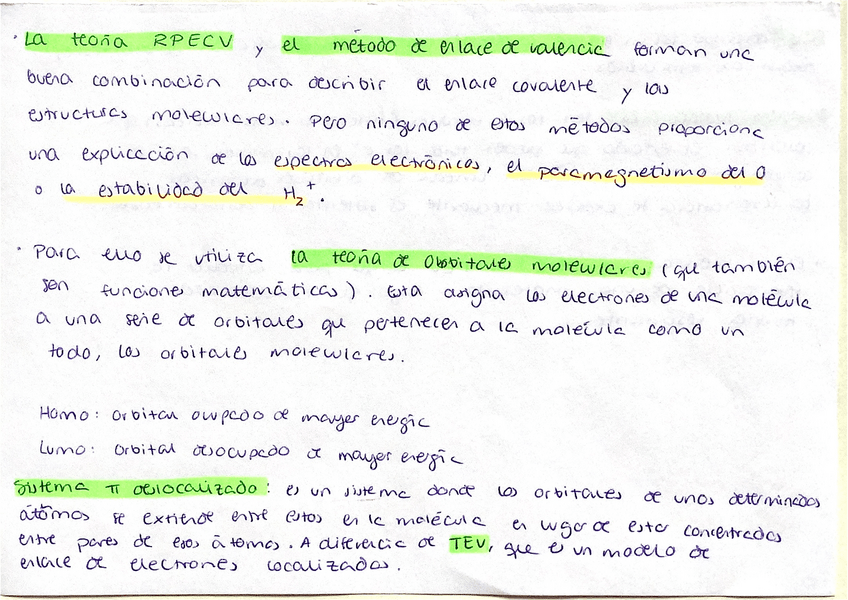 · La teoría RPECV y el método de enlace de valencia forman una
buena combinación para describir el enlace covalente y las
estructuras moleculares. Pero ninguno de estos métodos proporciona
una explicación de los espectros electrónicos, el paramagnetismo del O
o la estabilidad del H₂⁺.
· Para ello se utiliza la teoría de Orbitales moleculares (que también
son funciones matemáticas). Esta asigna los electrones de una molécula
a una serie de orbitales que pertenecen a la molécula como un
todo, los orbitales moleculares.
Homo: orbital ocupado de mayor energía
Lumo: orbital desocupado de mayor energía
Sistema π deslocalizado: es un sistema donde los orbitales de unos determinados
átomos se extiende entre estos en la molécula en lugar de estar concentrados
entre pares de esos átomos. A diferencia de TEV, que es un modelo de
enlace de electrones localizados.